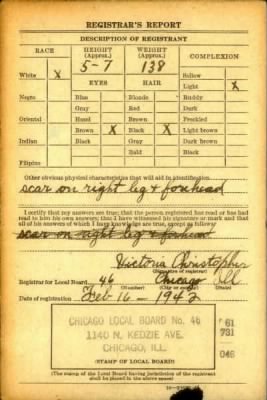 REGISTRAR'S REPORT
DESCRIPTION OF REGISTRANT
RACE HEIGHT (Approx.) WEIGHT (Approx.) COMPLEXION
5-7 138
White X Sallow
EYES HAIR Light X
Negro Blue Blonde Ruddy
Gray Red Dark
Oriental Hazel Brown Freckled
Brown X Black X Light brown
Indian Black Gray Dark brown
Bald Black
Filipino
Other obvious physical characteristics that will aid in identification
scar on right leg & forehead
I certify that my answers are true; that the person registered has read or has had
read to him his own answers; that I have witnessed his signature or mark and that
all of his answers of which I have knowledge are true, except as follows:
scar on right leg & forhead
Victoria Christopher
(Signature of registrar)
Registrar for Local Board 46 Chicago Ill
(Number) (City or county) (State)
Date of registration Feb 16 - 1942
CHICAGO LOCAL BOARD No. 46
1140 N. KEDZIE AVE.
CHICAGO, ILL.
61
731
046
(STAMP OF LOCAL BOARD)
(The stamp of the Local Board having jurisdiction of the registrant
shall be placed in the above space)